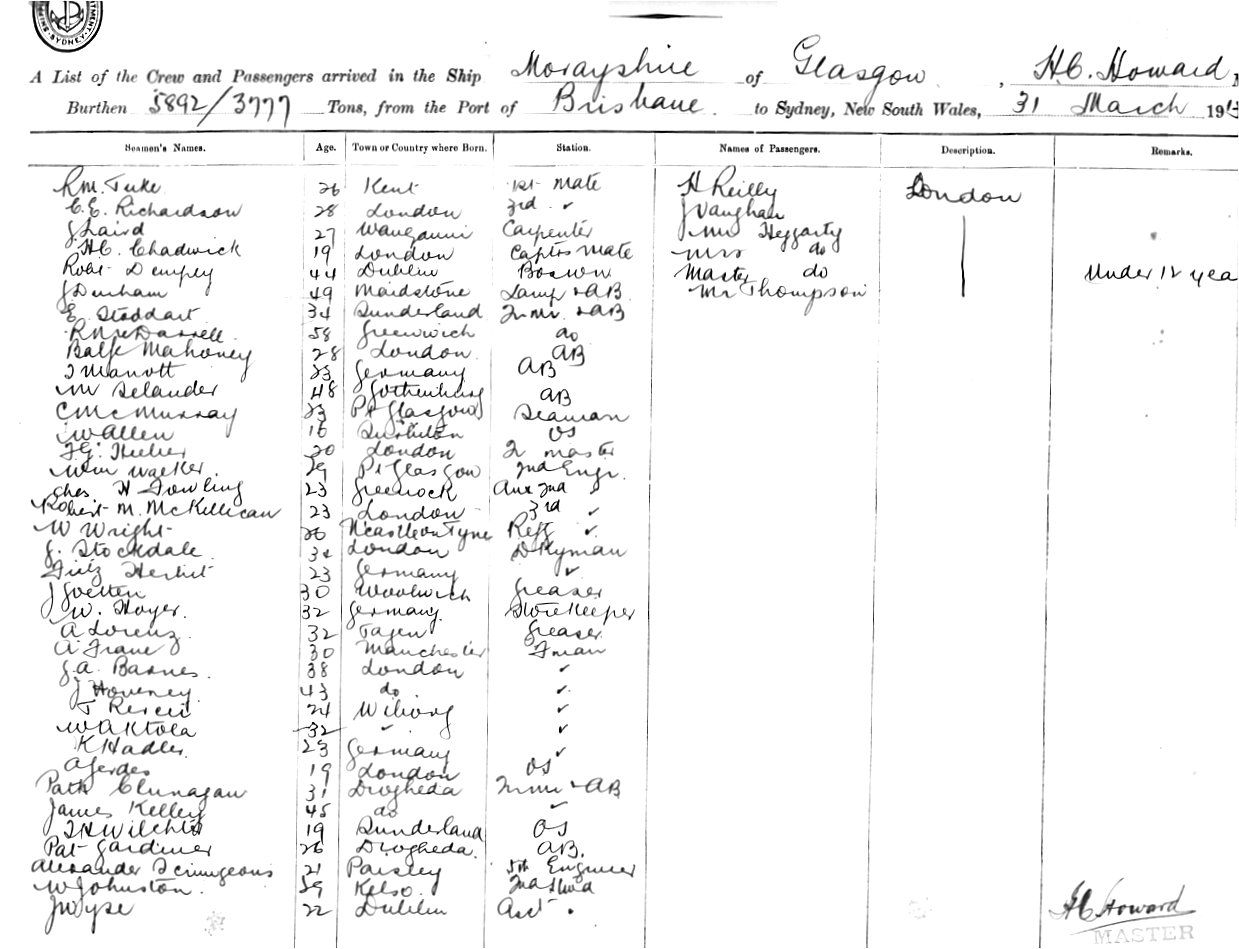 SYDNEY
A List of the Crew and Passengers arrived in the Ship Morayshire of Glasgow, H.C. Howard,
Burthen 5892/3777 Tons, from the Port of Brisbane to Sydney, New South Wales, 31 March 191
Seamen's Names. Age. Town or Country where Born. Station. Names of Passengers. Description. Remarks.
R.M. Tuke 26 Kent 1st Mate H Reilly London
C.E. Richardson 28 London 3rd ✓ J Vaughan
J Laird 27 Carpenter Mr Heggarty
H.C. Chadwick 19 London Mate Mrs do
Robt Dempey 44 Dublin Bosun Master do Under 12 yea
J Durham 49 Maidstone Lamp & AB Mr Thompson
E. Stoddart 34 Sunderland & AB
58 Greenwich do
Balfe Mahoney 28 London AB
Germany AB
Selander 48 Gothenburg AB
C McMurray 23 Pt Glasgow Seaman
W Allen 16 OS
20 London master
Wm Walker 29 Pt Glasgow 2nd Engr.
Chas. H Gowling 23 Greenock Aux 2nd
Robert M. McKillican 23 London 3rd ✓
W Wright 26 N'castle on Tyne Refg ✓
J. Stockdale London Dkyman
Fritz Herbst 23 Germany ✓
30 Woolwich Greaser
W. Hoyer 32 Germany Storekeeper
A Lorenz 32 Greaser
A 30 Manchester Fman
J.A. Barnes 38 London ✓
J 43 do ✓
T 24 Wiborg ✓
32 ✓ ✓
K Hadler 23 Germany ✓
A Gerdes 19 London OS
Patk Clunagan 31 Drogheda & AB
James Kelley 45 do ✓
19 Sunderland OS
Pat Gardiner 26 Drogheda AB.
Alexander Scrimgeous 21 Paisley 5th Engineer
W Johnston. 59 Kelso 2nd
J Wyse 22 Dublin Asst
H C Howard
MASTER